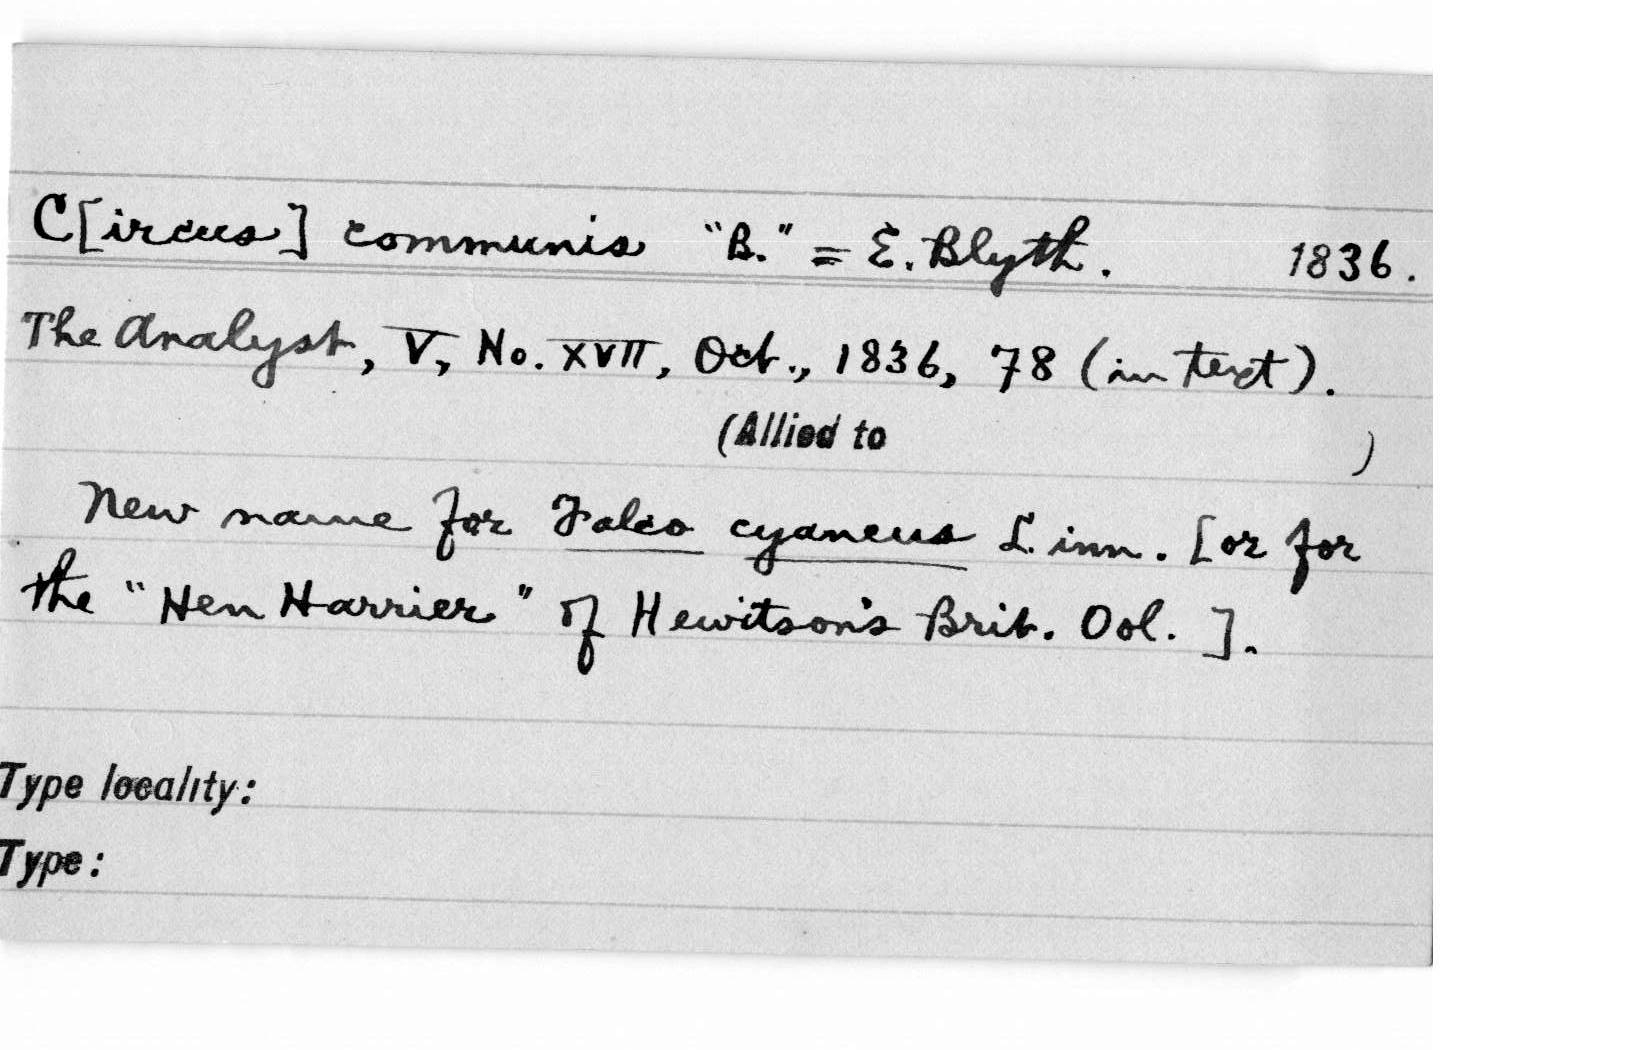 C[ircus] communis "B." = E. Blyth. 1836.
The Analyst, V, No. XVII, Oct., 1836, 78 (in text).
(Allied to )
New name for Falco cyaneus Linn. [or for
the "Hen Harrier" of Hewitson's Brit. Ool. ].
Type locality:
Type: